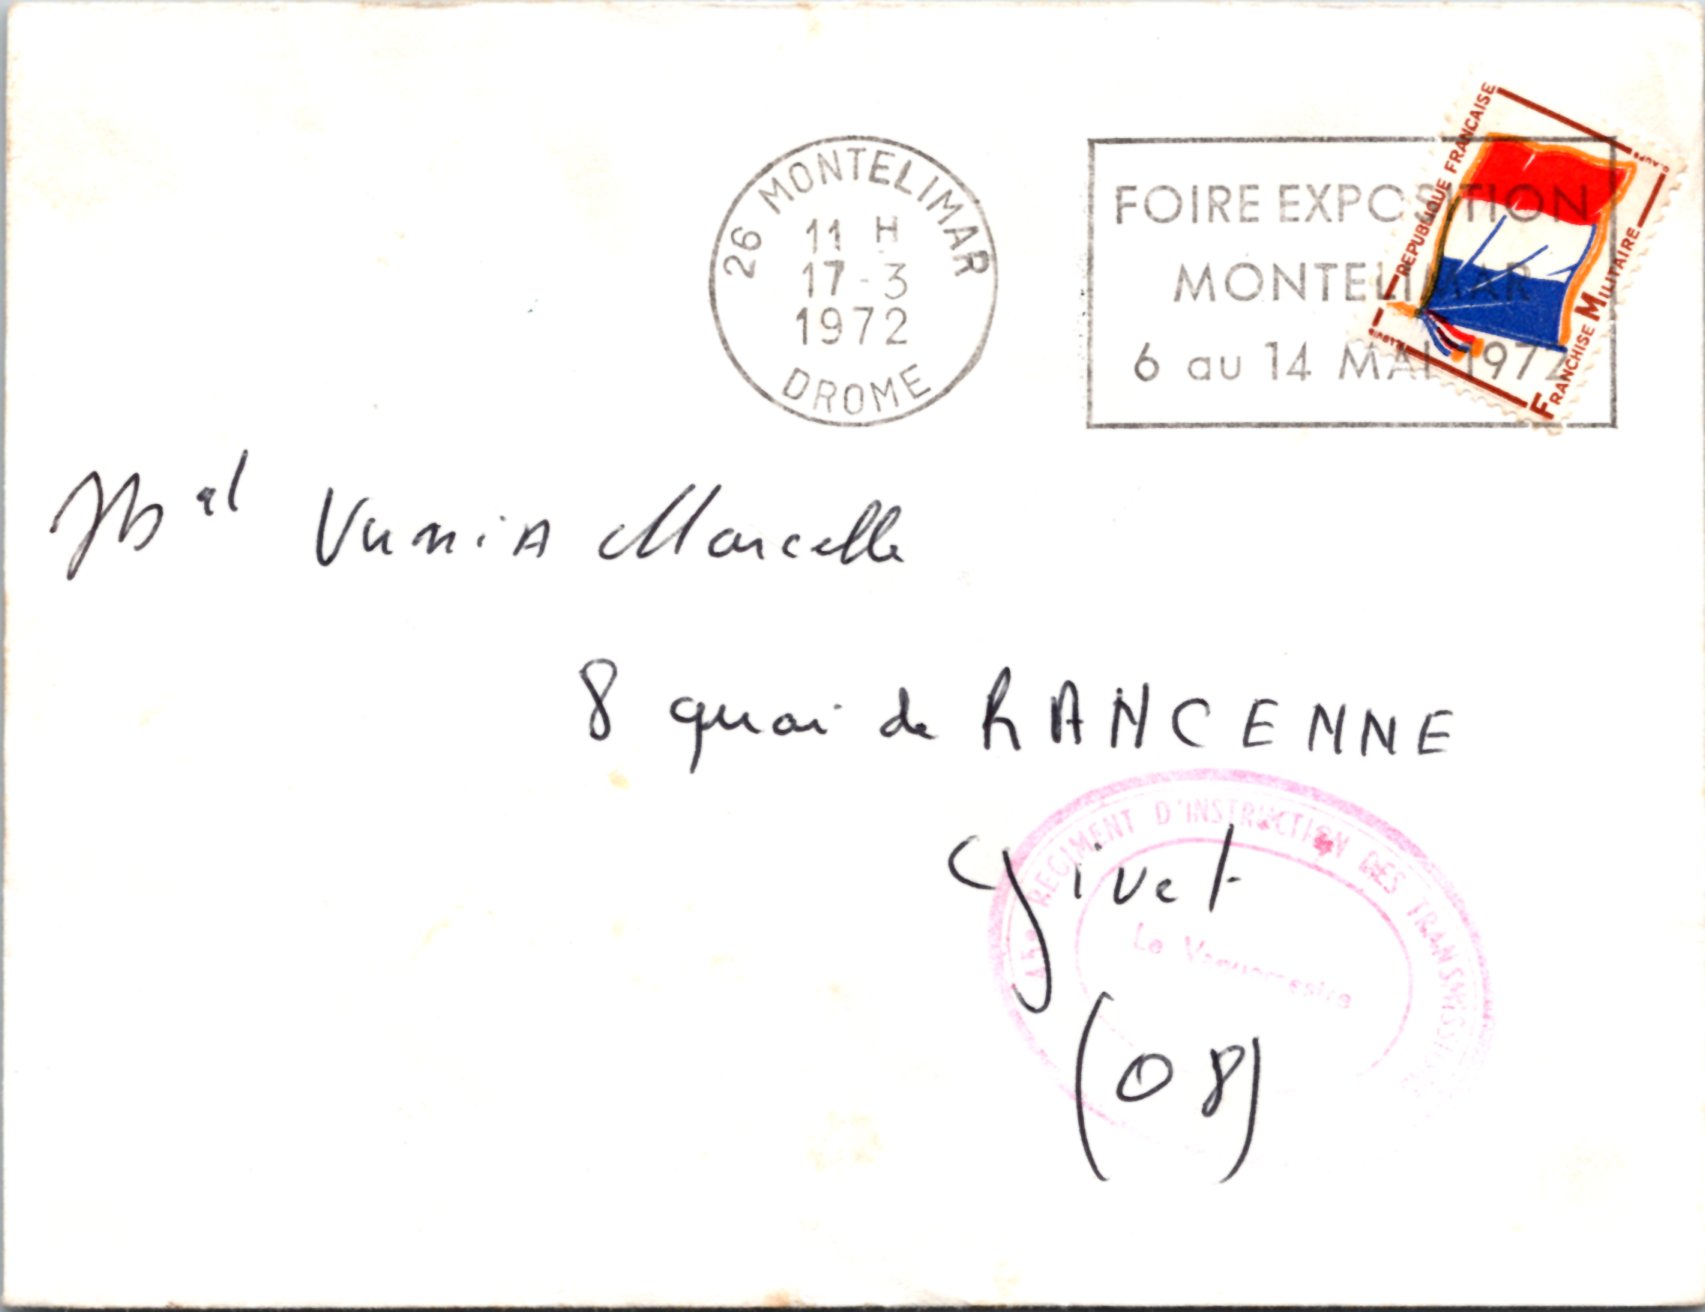 26 MONTELIMAR
11 H
17-3
1972
DROME
FOIRE EXPOSITION
MONTELIMAR
6 au 14 MAI 1972
REPUBLIQUE FRANCAISE
FRANCHISE MILITAIRE
Marcelle
8 quai de RANCENNE
Givet
(08)
45e REGIMENT D'INSTRUCTION DES TRANSMISSIONS
Le Vaguemestre